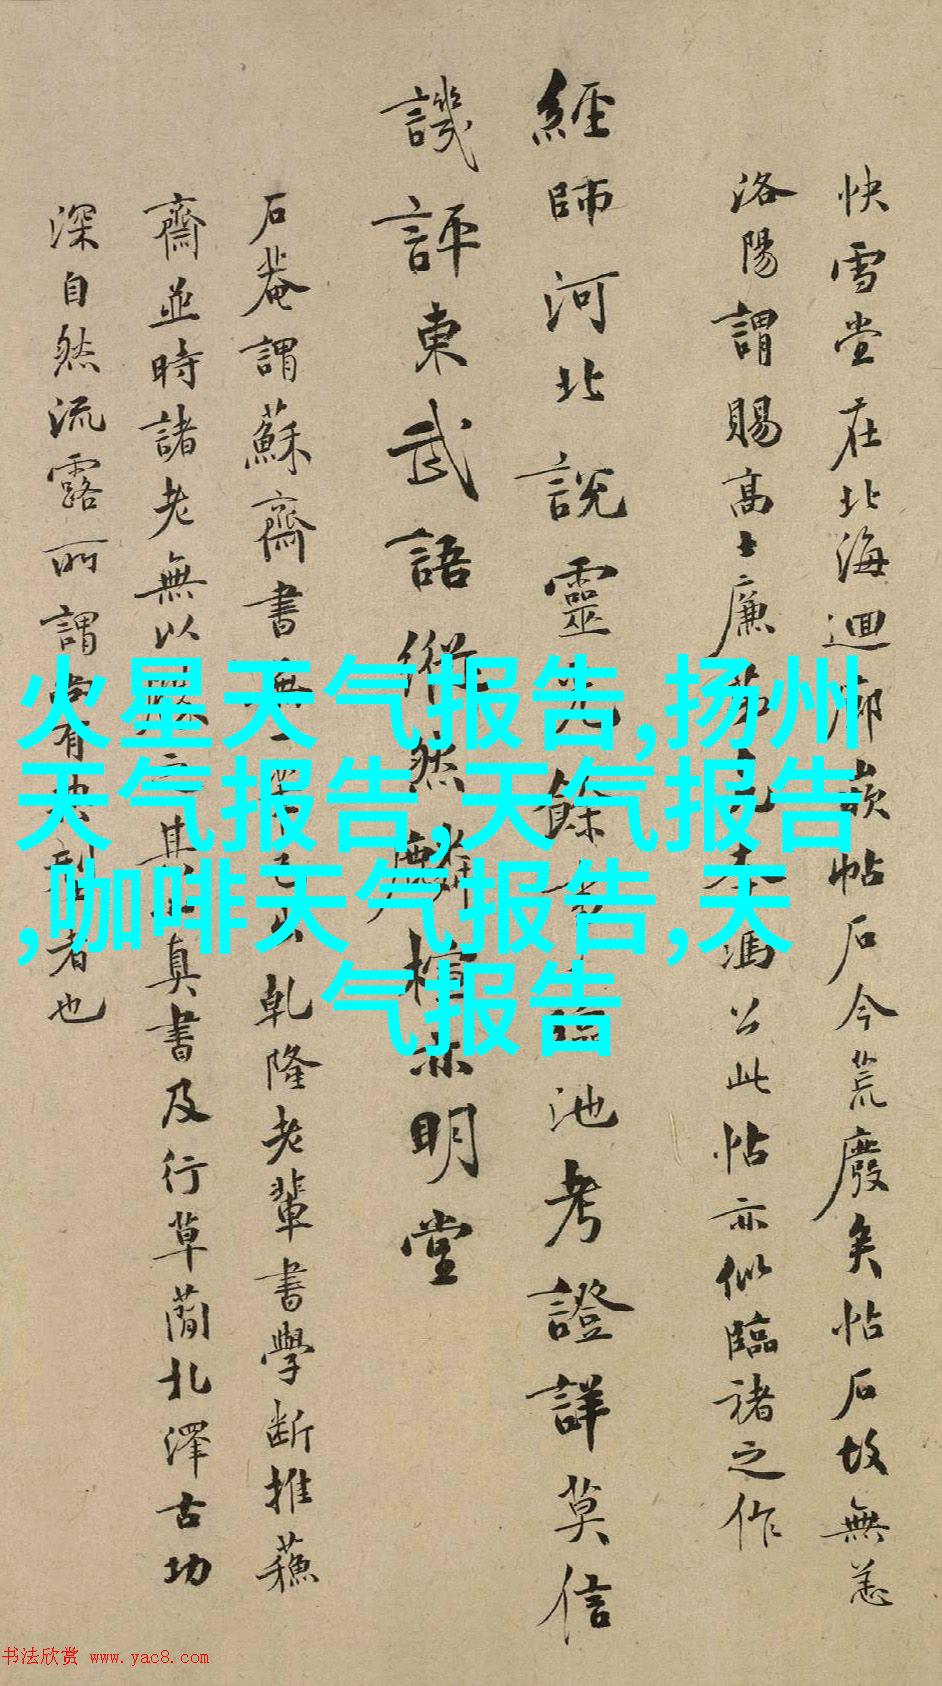 快雪堂在北海迴廊嵌帖石今荒廢矣帖石故無恙
洛陽謂賜高士廉茅馮公此帖亦似臨褚之作
經師河北說靈光餘池考證詳莫信
譏評東武語縱然麟楦亦明堂
石菴謂蘇齋書無一筆己出乾隆老輩書學斷推蘇
齋並時諸老無以之其真書及行草蕳北澤古功
深自然流露所謂當有者也
火星天气报告,扬州
天气报告,天气报告
,咖啡天气报告,天
气报告
书法欣赏 www.yac8.com